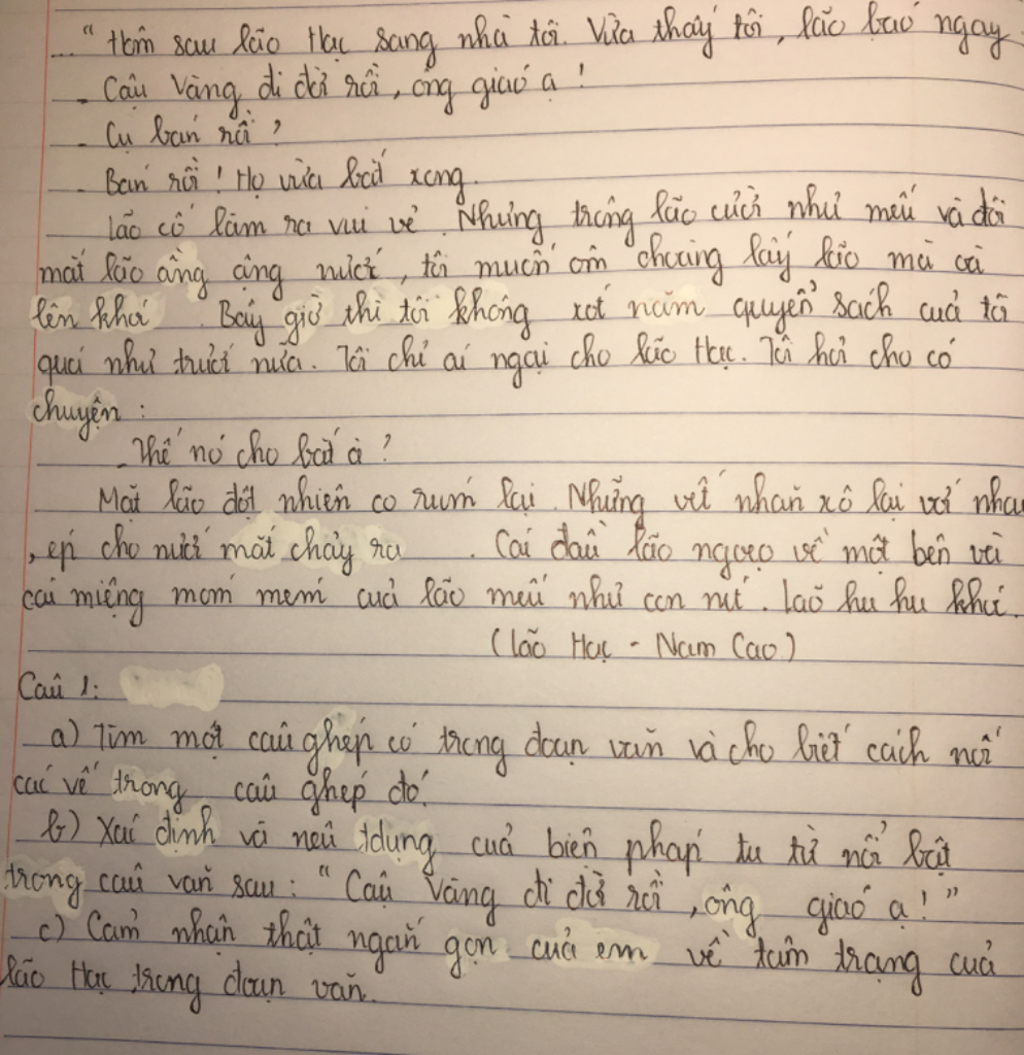 ... " Hôm sau lão Hạc sang nhà tôi. Vừa thấy tôi, lão báo ngay.
- Cậu Vàng đi đời rồi, ông giáo ạ !
- Cụ bán rồi ?
- Bán rồi ! Họ vừa bắt xong.
Lão cố làm ra vui vẻ. Nhưng trông lão cười như mếu và đôi
mắt lão ầng ậng nước, tôi muốn ôm choàng lấy lão mà oà
lên khóc. Bây giờ thì tôi không xót năm quyển sách của tôi
quá như trước nữa. Tôi chỉ ái ngại cho lão Hạc. Tôi hỏi cho có
chuyện :
- Thế nó cho bắt à ?
Mặt lão đột nhiên co rúm lại. Những vết nhăn xô lại với nhau
, ép cho nước mắt chảy ra . Cái đầu lão ngoẹo về một bên và
cái miệng móm mém của lão mếu như con nít. Lão hu hu khóc.
(Lão Hạc - Nam Cao)
Câu 1:
a) Tìm một câu ghép có trong đoạn văn và cho biết cách nối
các vế trong câu ghép đó.
b) Xác định và nêu tdụng của biện pháp tu từ nổi bật
trong câu văn sau : " Cậu Vàng đi đời rồi , ông giáo ạ ! "
c) Cảm nhận thật ngắn gọn của em về tâm trạng của
lão Hạc trong đoạn văn.